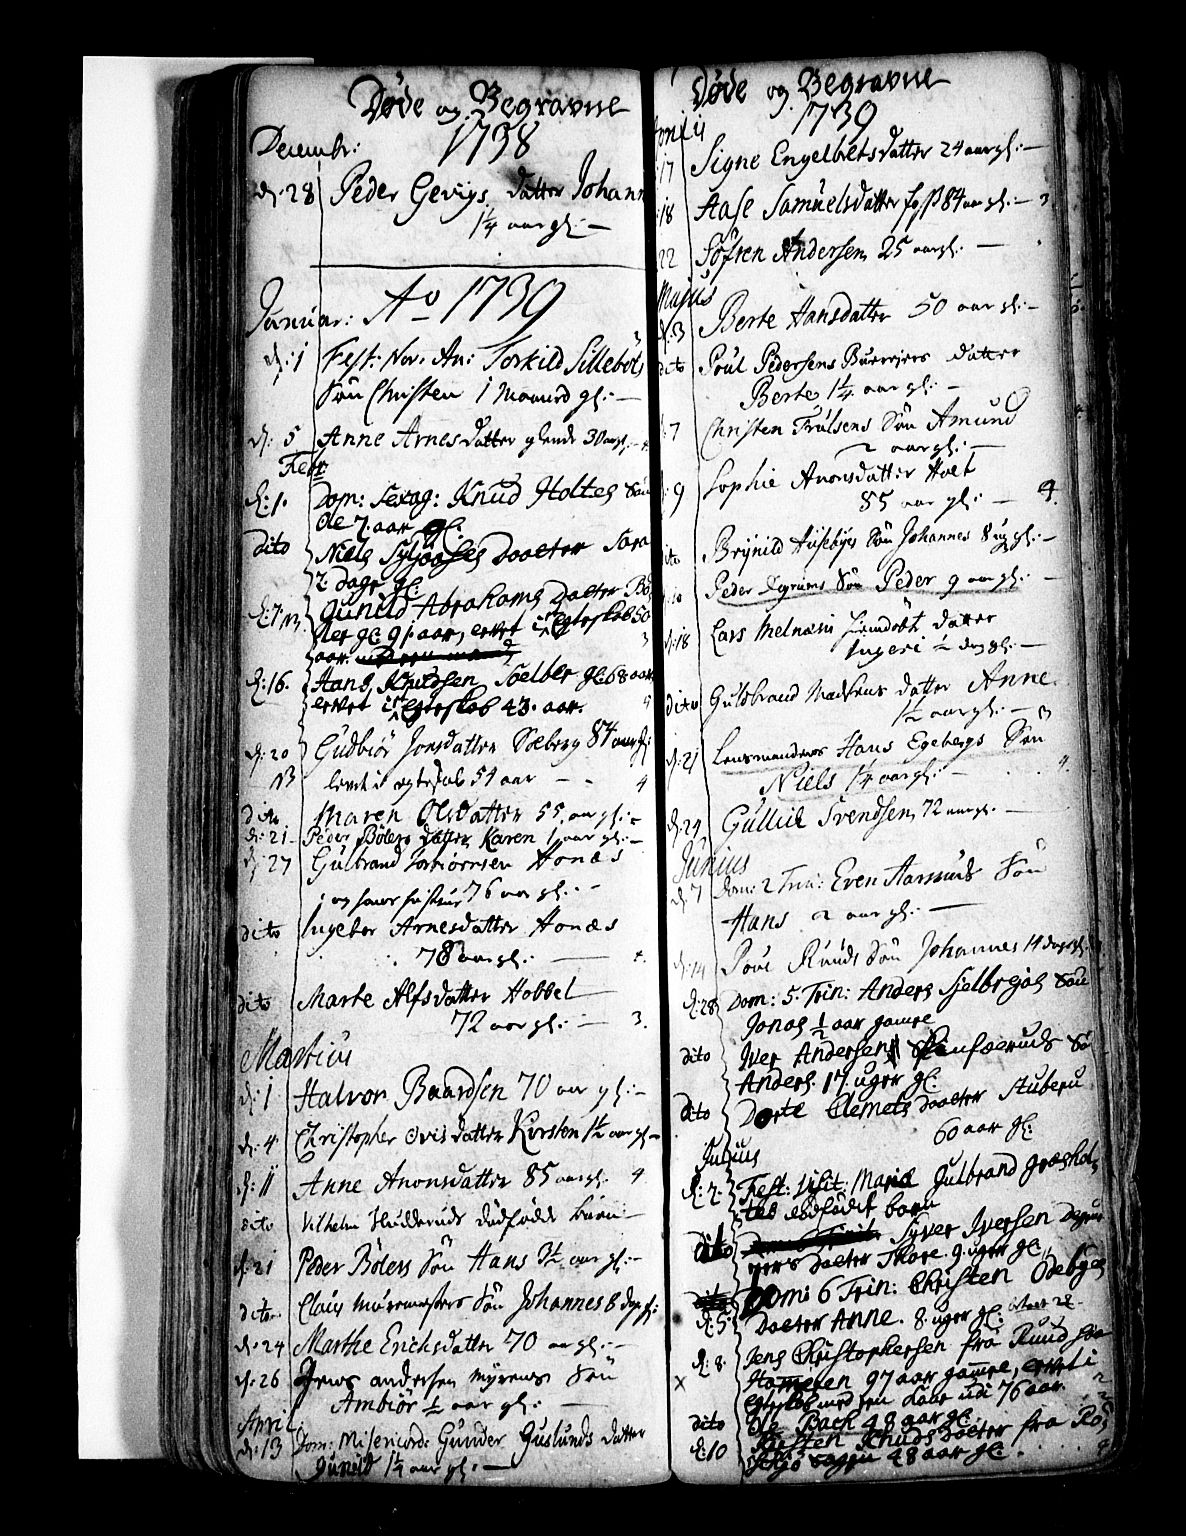 Døde og Begravne
1738
Decembr:
d: 28 Peder Gevigs datter Johann
1¼ aar gl: —
Januar: Ao 1739
d: 1 Fest: Nov: An: Torkild Sillebøls
Søn Christen 1 Maaned gl: —
d: 5 Anne Arnesdatter 30 aar gl: — 4
Febr
d: 1. Dom: Sexag: Knud Holtes Søn
Ole 7 aar gl:
dito Niels daatter Sara
2 dage gl:
d: 7 Gunild Abrahams daater
gl: 91 aar, levet i Egteskab 50
aar. 3
d: 16. Hans Knudsen Soelber gl: 68 aar
levet i Egteskab 43. aar.
d: 20 Gudbiør Jonsdatter Solberg 84 aar gl:
NB levet i egteskab 51 aar — — 4
dito Maren Olsdatter 55 aar gl: —
d: 21 Peder Bølers datter Karen 1 aar gl: —
d: 27 Gulbrand Torbiørnsen Honæs
og hans hustrue 76 aar gl: —
dito Ingebor Arnesdatter Honæs
78 aar gl: — 4.
dito Marte Alfsdatter Hobbel
72 aar gl: — 3.
Martius
d: 1 Halvor Baardsen 70 aar gl: —
d: 4 Christopher datter Kirsten 1½ aar gl —
d: 11 Anne Anonsdatter 85 aar gl: 4
dito Vilhelm Hudderuds dødfødde barn —
d: 21 Peder Bølers Søn Hans 3½ aar gl: —
dito Claus Muremesters Søn Johannes 8 dag gl:
d: 24 Marthe Erichsdatter 70 aar gl: —
d: 26 Jens andersen Myrens Søn
Ambiør ½ aar gl: —
April
d: 13 Dom: Misericord: Gunder Guslunds datter
Gunild 1½ aar gl: —
Døde og Begravne
1739
17 Signe Engelbretsdatter 24 aar gl: —
18 Aase Samuelsdatter foss 84 aar gl: — 3
22 Søfren Andersen 25 aar gl: —
Majus
d: 3 Berte Hansdatter 50 aar gl: —
dito Poul Pedersens datter
Berte 1¼ aar gl: —
7 Christen Trulsens Søn Amund
2 aar gl: —
9 Sophie Anonsdatter Holt
85 aar gl: — 4
dito Brynild Huseby Søn Johannes 8 ug gl: —
Peder Degnens Søn Peder 9 aar gl: —
d: 18 Lars Melnæss hiemdøbt datter
Ingeri ½ dag gl: —
dito Guldbrand Madsens datter Anne
1½ aar gl: — 3
d: 21 Lensmandens Hans Egebergs Søn
Niels 1¼ aar gl: — 4
d: 24 Gullic Svendsen 72 aar gl: —
Junius
d: 7 Dom: 2 Trin: Even Aasmuds Søn
Hans 2 aar gl: —
d: 14 Povel Ruuds Søn Johannes 14 dage gl:
d: 28 Dom: 5. Trin: Anders Sielbrejds Søn
Jonas ½ aar gamle
dito Iver Andersen Søn
Anders. 17. uger gl:
dito Dorte Clemets daatter Stuberu
60 aar gl:
Julius
d: 2. Fest: Visit: Mariæ Gulbrand Græsholts
dødfødet barn
dito Syver Iversen
daater Thore. 9. uger gl:
d: 5 Dom: 6 Trin: Christen Ødebyes
Daater Anne. 8. uger gl:
d: 8. Jens Christophersen fra Ruud
97 aar gamle, levet i
Egteskab med sin udi 76 aar. 2
dito Ole Bach 48 aar gl: 2
d: 10 Kirsten Knudsdaater fra
48 aar gl: 4